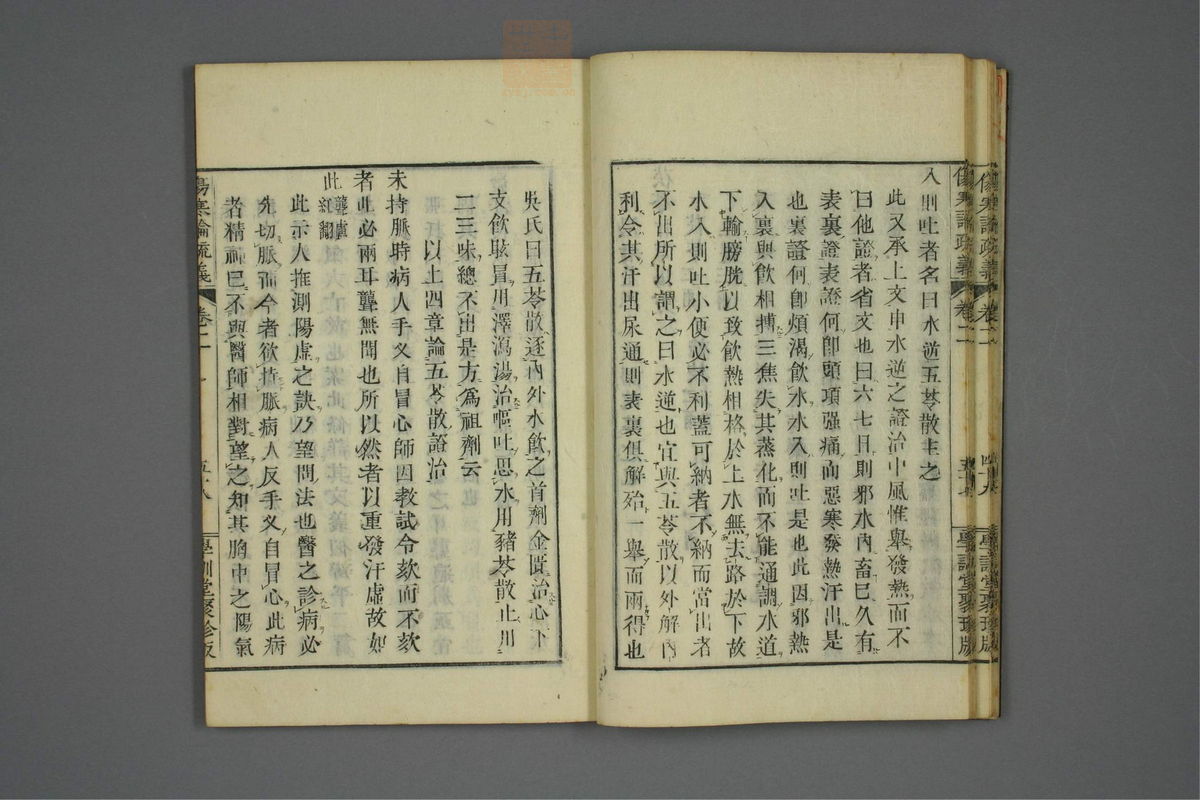 入則吐者名曰水逆五苓散主之
此又承上文申水逆之證治中風惟舉發熱而不
曰他證者省文也曰六七日則邪水內畜已久有
表裏證表證何卽頭項强痛而惡寒發熱汗出是
也裏證何卽煩渴飮水水入則吐是也此因邪熱
入裏與飮相搏三焦失其蒸化而不能通調水道
下輸膀胱以致飮熱相格於上水無去路於下故
水入則吐小便必不利蓋可納者不納而當出者
不出所以謂之曰水逆也宜與五苓散以外解內
利令其汗出尿通則表裏俱解殆一舉而兩得也
吳氏曰五苓散逐內外水飮之首劑金匱治心下
支飮眩冒用澤瀉湯治嘔吐思水用豬苓散止用
二三味總不出是方爲祖劑云
以上四章論五苓散證治
未持脈時病人手叉自冒心師因教試令欬而不欬
者此必兩耳聾無聞也所以然者以重發汗虛故如
此聾盧紅翻
此示人推測陽虛之訣乃望問法也醫之診病必
先切脈而今者欲持脈病人反手叉自冒心此病
者精神已不與醫師相對望之知其胸中之陽氣
傷寒論疏義
卷二
五十八
學訓堂聚珍版
傷寒論疏義
卷二
五十七
學訓堂聚珍版